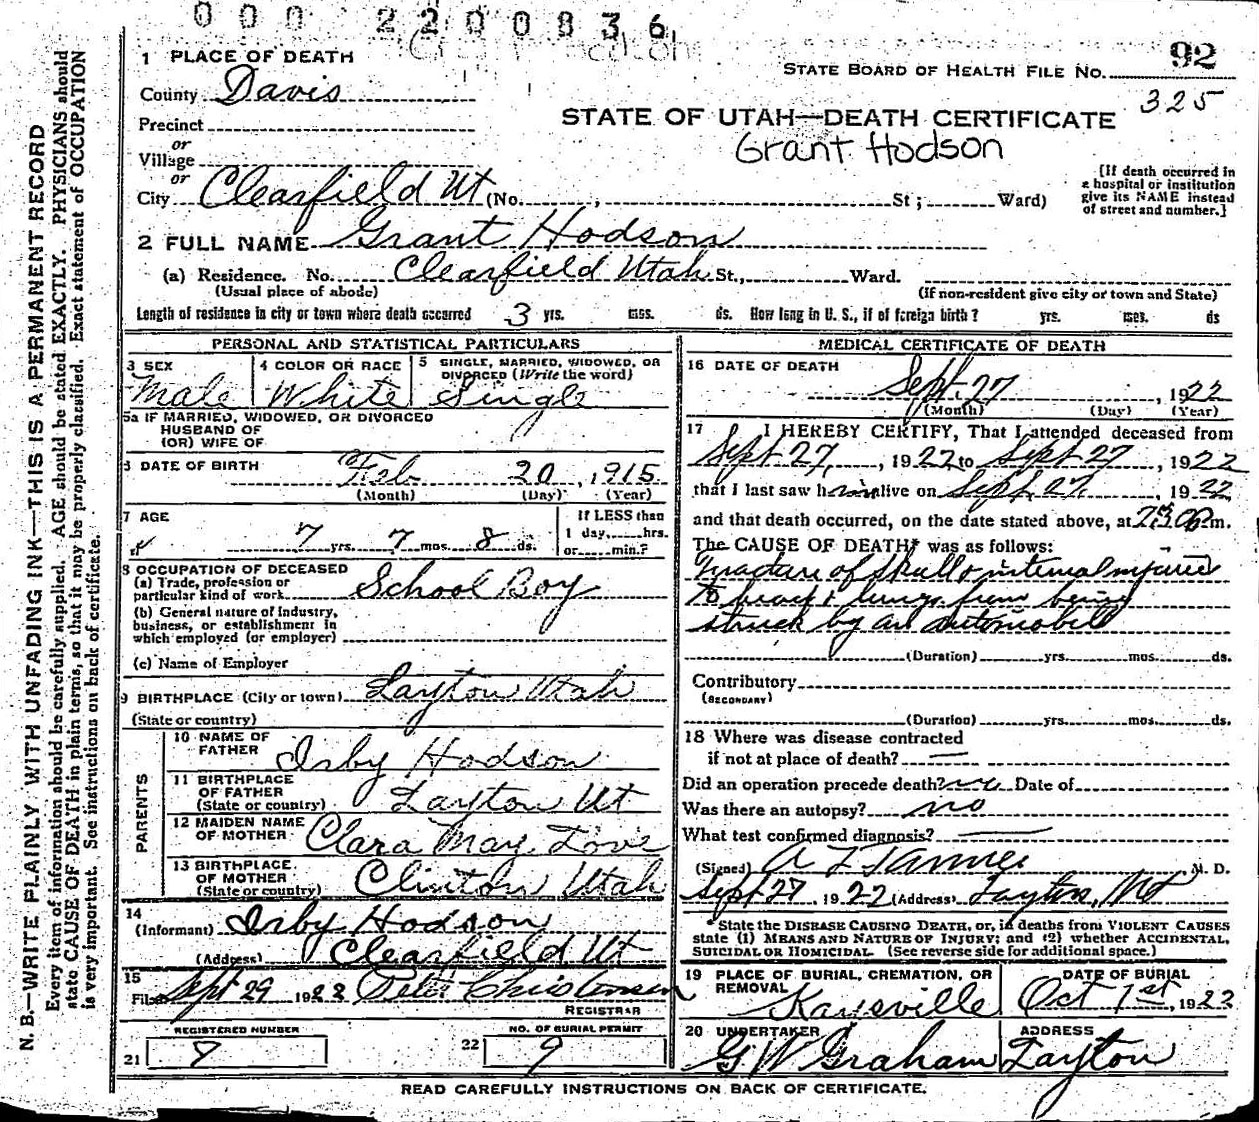 000 2200836
92
STATE BOARD OF HEALTH FILE No.
325
1 PLACE OF DEATH
County Davis
STATE OF UTAH—DEATH CERTIFICATE
Precinct
or
Grant Hodson
Village
or
City Clearfield Ut (No. , St ; Ward)
[If death occurred in
a hospital or institution
give its NAME instead
of street and number.]
2 FULL NAME Grant Hodson
(a) Residence. No. Clearfield Utah St., Ward.
(Usual place of abode) (If non-resident give city or town and State)
Length of residence in city or town where death occurred 3 yrs. mos. ds. How long in U. S., if of foreign birth? yrs. mos. ds
PERSONAL AND STATISTICAL PARTICULARS
3 SEX 4 COLOR OR RACE 5 SINGLE, MARRIED, WIDOWED, OR
DIVORCED (Write the word)
Male White Single
5a IF MARRIED, WIDOWED, OR DIVORCED
HUSBAND OF
(OR) WIFE OF
6 DATE OF BIRTH Feb 20, 1915
(Month) (Day) (Year)
7 AGE If LESS than
7 yrs. 7 mos. 8 ds. 1 day, hrs.
or min.?
8 OCCUPATION OF DECEASED
(a) Trade, profession or
particular kind of work School Boy
(b) General nature of industry,
business, or establishment in
which employed (or employer)
(c) Name of Employer
9 BIRTHPLACE (City or town) Layton Utah
(State or country)
PARENTS
10 NAME OF
FATHER Irby Hodson
11 BIRTHPLACE
OF FATHER
(State or country) Layton Ut
12 MAIDEN NAME
OF MOTHER Clara May Love
13 BIRTHPLACE
OF MOTHER
(State or country) Clinton Utah
14
(Informant) Irby Hodson
(Address) Clearfield Ut
15
Filed Sept 29 1922 Christensen
REGISTRAR
REGISTERED NUMBER NO. OF BURIAL PERMIT
21 8 22 9
MEDICAL CERTIFICATE OF DEATH
16 DATE OF DEATH
Sept. 27, 1922
(Month) (Day) (Year)
17 I HEREBY CERTIFY, That I attended deceased from
Sept 27, 1922 to Sept 27, 1922
that I last saw him alive on Sept. 27, 1922
and that death occurred, on the date stated above, at m.
The CAUSE OF DEATH* was as follows:
Fracture of skull & internal injuries
to heart & lungs from being
struck by an automobill
(Duration) yrs. mos. ds.
Contributory
(SECONDARY)
(Duration) yrs. mos. ds.
18 Where was disease contracted
if not at place of death? —
Did an operation precede death? no Date of
Was there an autopsy? no
What test confirmed diagnosis? —
(Signed) A Z Tanner M. D.
Sept 27, 1922 (Address) Layton, Ut
*State the DISEASE CAUSING DEATH, or, in deaths from VIOLENT CAUSES
state (1) MEANS AND NATURE OF INJURY; and (2) whether ACCIDENTAL,
SUICIDAL OR HOMICIDAL (See reverse side for additional space.)
19 PLACE OF BURIAL, CREMATION, OR
REMOVAL DATE OF BURIAL
Kaysville Oct 1st, 1922
20 UNDERTAKER ADDRESS
G W Graham Layton
READ CAREFULLY INSTRUCTIONS ON BACK OF CERTIFICATE.
N.B.—WRITE PLAINLY WITH UNFADING INK—THIS IS A PERMANENT RECORD
Every item of information should be carefully supplied. AGE should be stated EXACTLY. PHYSICIANS should
state CAUSE OF DEATH in plain terms, so that it may be properly classified. Exact statement of OCCUPATION
is very important. See instructions on back of certificate.